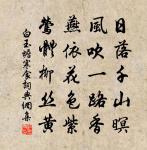 日落千山暝
風吹一路香
燕依花色紫
鶯柳丝黄
白玉蟾寒食詞典網集